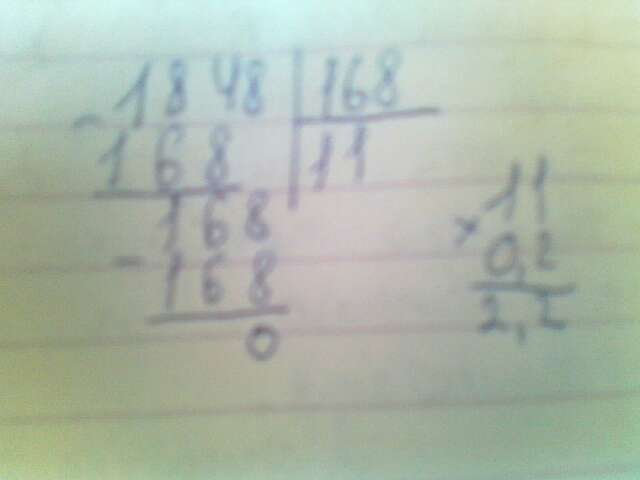 - 1848 | 168
168 | 11
168
- 168
0
11
× 0,2
2,2